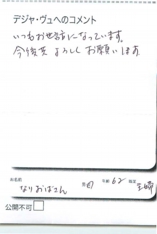 デジャ・ヴュへのコメント
いつもお世話になっています。
今後共よろしくお願いします
お名前 なりおばさん 年齢 62
公開不可